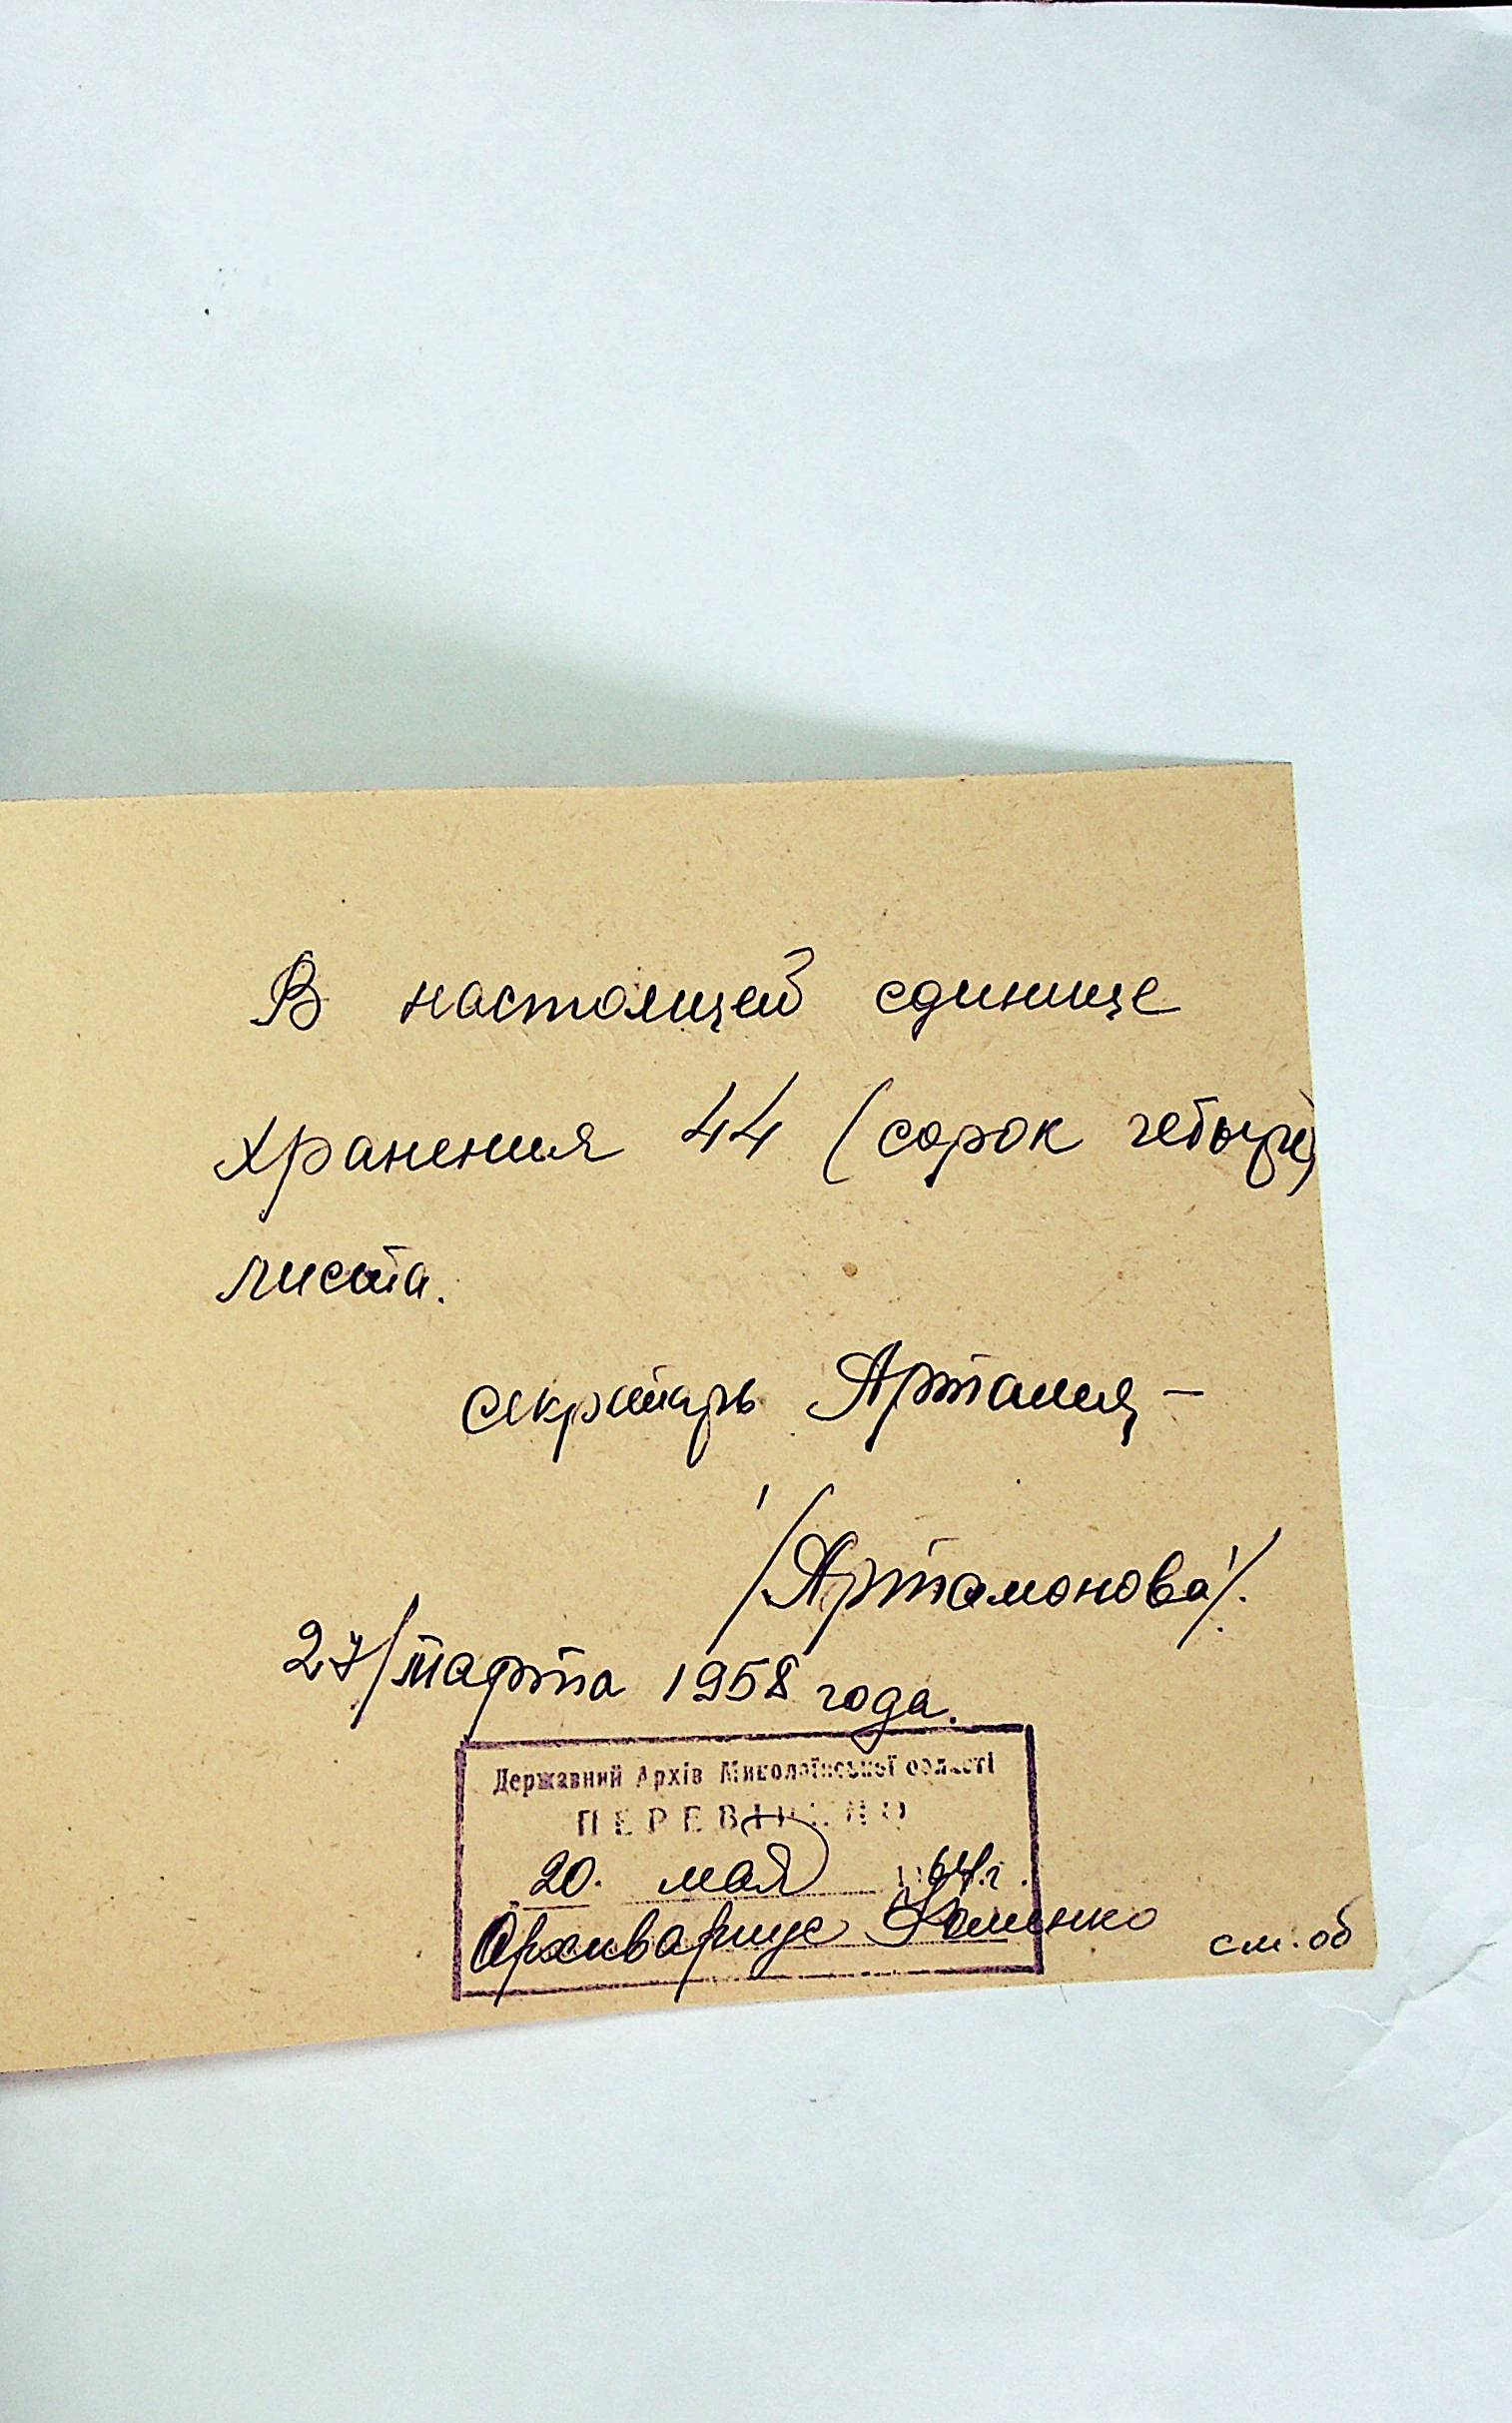 В настоящей единице
хранения 44 (сорок четыре)
листа.
секретарь
/Артамонова/.
27/марта 1958 года.
Державний Архів Миколаївської області
ПЕРЕВІРЕНО
20. мая 64 г.
Архивариус
см. об